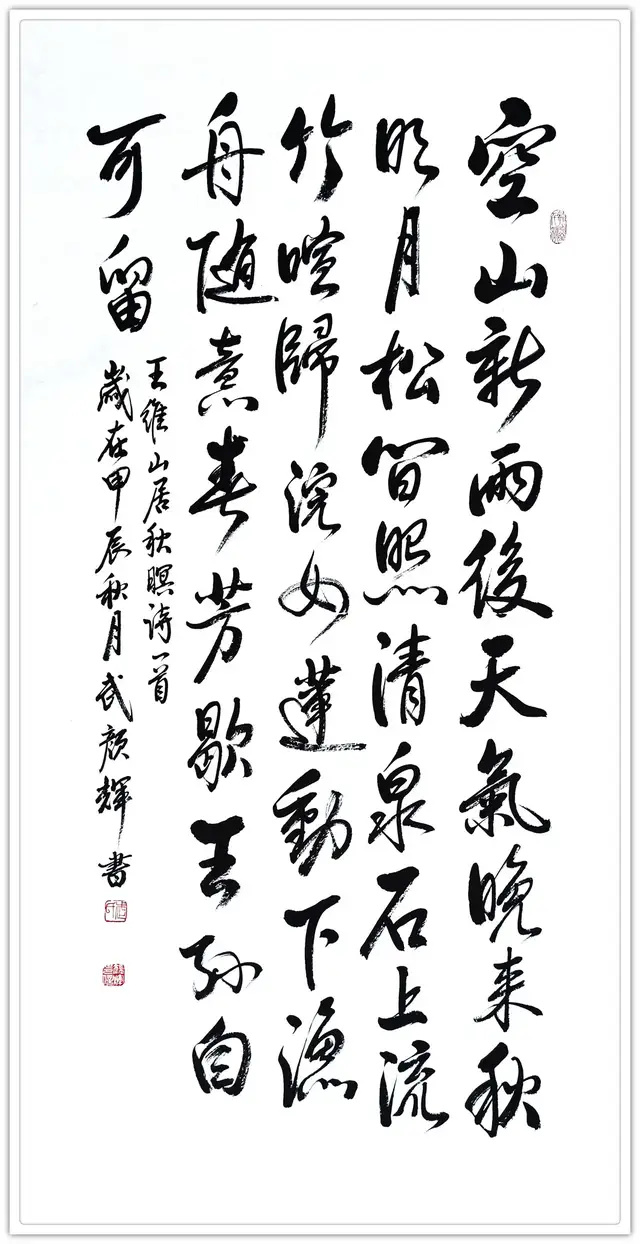 空山新雨後天氣晚来秋
明月松间照清泉石上流
竹喧歸浣女蓮動下漁
舟随意春芳歇王孙自
可留
王維山居秋暝诗一首
歲在甲辰秋月武颜輝書